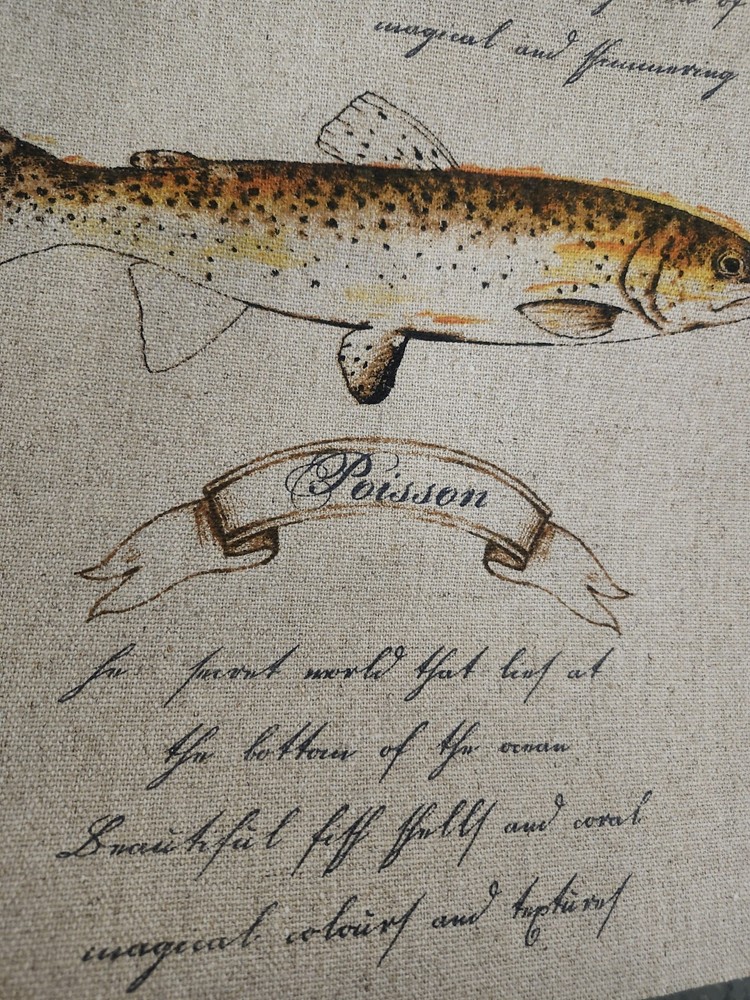 magical and shimmering
Poisson
he secret world that lies at
the bottom of the ocean
Beautiful fish shells and coral
magical colours and textures